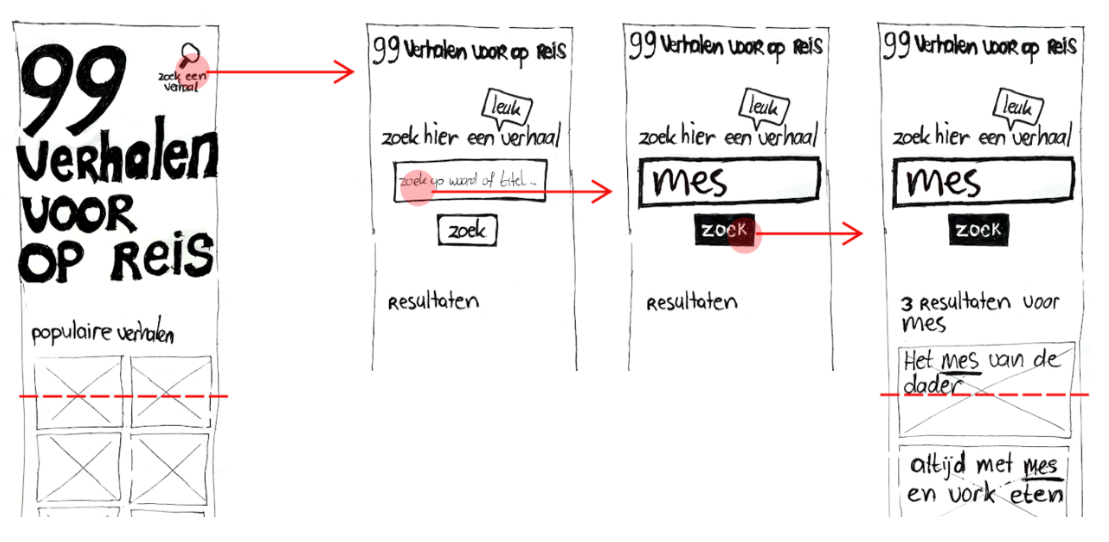 99
zoek een
verhaal
verhalen
voor
op reis
populaire verhalen
99 verhalen voor op reis
leuk
zoek hier een verhaal
zoek op woord of titel...
zoek
Resultaten
99 verhalen voor op reis
leuk
zoek hier een verhaal
mes
zoek
Resultaten
99 verhalen voor op reis
leuk
zoek hier een verhaal
mes
zoek
3 Resultaten voor
mes
Het mes van de
dader
altijd met mes
en vork eten